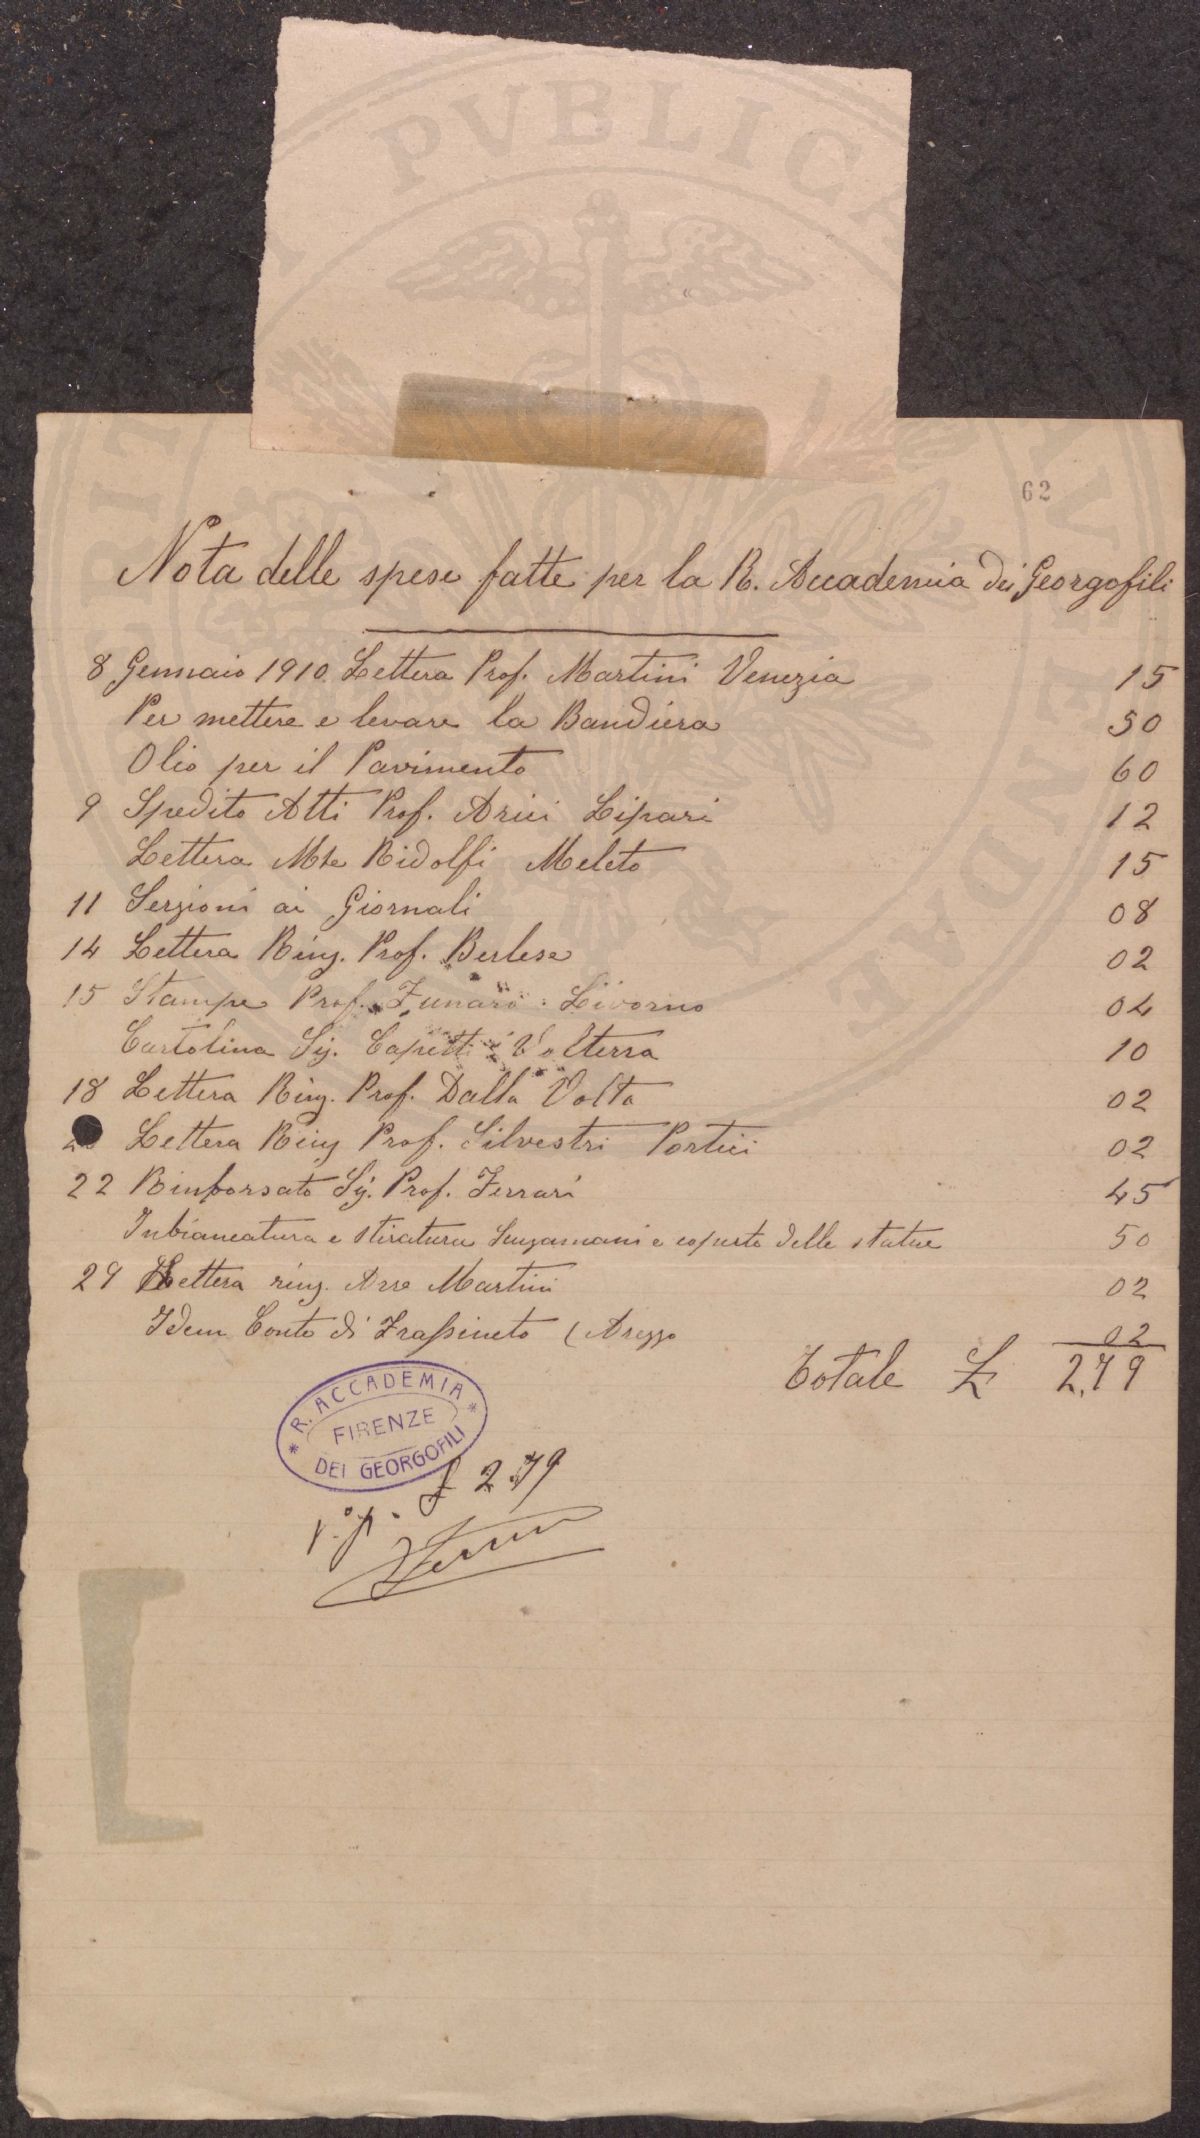 PVBLICA
62
Nota delle spese fatte per la R. Accademia dei Georgofili
8 Gennaio 1910 Lettera Prof. Martini Venezia 15
Per mettere e levare la Bandiera 50
Olio per il Pavimento 60
9 Spedito Atti Prof. Arici Lipari 12
Lettera Mse Ridolfi Meleto 15
11 Serzioni ai Giornali 08
14 Lettera Ring. Prof. Berlese 02
15 Stampe Prof. Funaro Livorno 04
Cartolina Sig. Capetti Volterra 10
18 Lettera Ring. Prof. Dalla Volta 02
Lettera Ring Prof. Silvestri Portici 02
22 Rimborsato Sig. Prof. Ferrari 45
Inbiancatura e stiratura Sugamani e coperte delle statue 50
29 Lettera ring. Martini 02
Idem Conte di Frassineto (Arezzo 02
Totale £ 2,79
R. ACCADEMIA
FIRENZE
DEI GEORGOFILI
£ 2.79